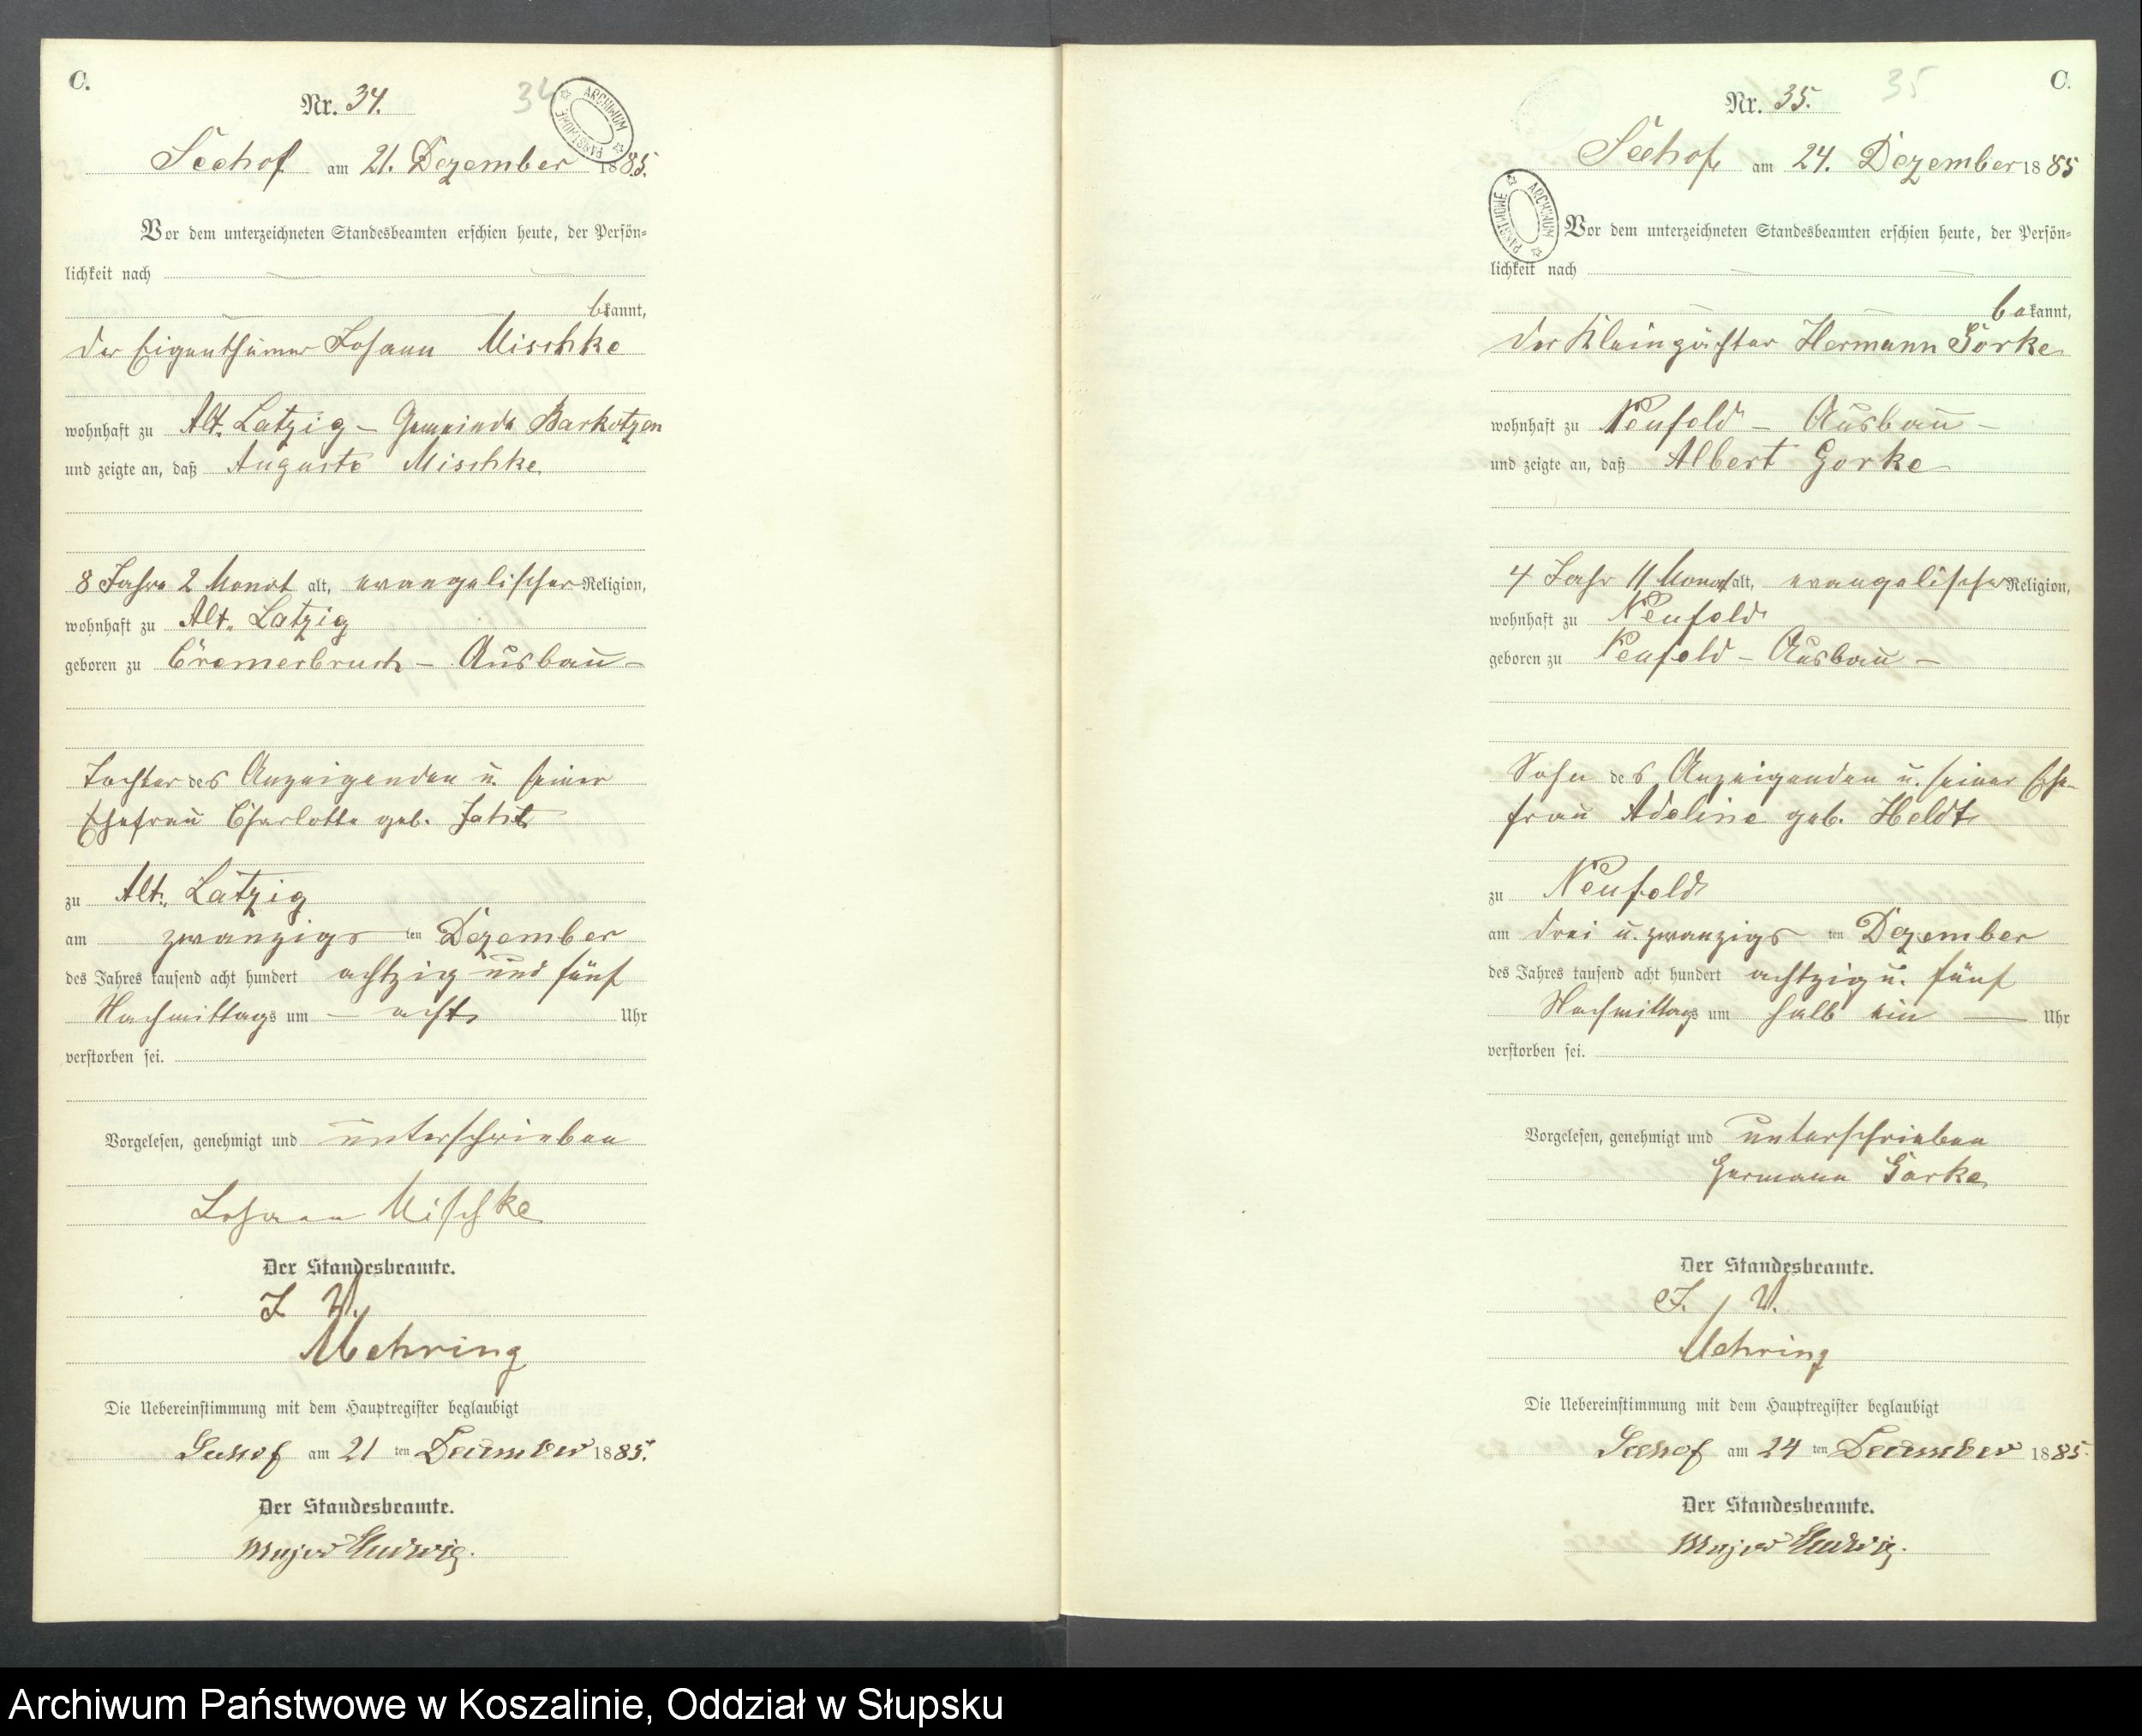 C.
Nr. 34.
34
ARCHIWUM PAŃSTWOWE
Seehof am 21. Dezember 1885.
Vor dem unterzeichneten Standesbeamten erschien heute, der Persön-
lichkeit nach
bekannt,
der Eigenthümer Johann Mischke
wohnhaft zu Alt. Latzig – Gemeinde Barkotzen
und zeigte an, daß Auguste Mischke
8 Jahre 2 Monat alt, evangelischer Religion,
wohnhaft zu Alt. Latzig
geboren zu Cremerbruch – Ausbau –
Tochter des Anzeigenden u. seiner
Ehefrau Charlotte geb.
zu Alt. Latzig
am zwanzigs ten Dezember
des Jahres tausend acht hundert achtzig und fünf
Nachmittags um – acht Uhr
verstorben sei.
Vorgelesen, genehmigt und unterschrieben
Johann Mischke
Der Standesbeamte.
J. V.
Mehring
Die Uebereinstimmung mit dem Hauptregister beglaubigt
Seehof am 21 ten December 1885.
Der Standesbeamte.
Major Ludwig.
C.
Nr. 35.
35
ARCHIWUM PAŃSTWOWE
Seehof am 24. Dezember 1885
Vor dem unterzeichneten Standesbeamten erschien heute, der Persön-
lichkeit nach
bekannt,
der Kleinpächter Hermann Gorke
wohnhaft zu Neufeld – Ausbau –
und zeigte an, daß Albert Gorke
4 Jahr 11 Monat alt, evangelischer Religion,
wohnhaft zu Neufeld
geboren zu Neufeld – Ausbau –
Sohn des Anzeigenden u. seiner Ehe-
frau Adeline geb. Heldt
zu Neufeld
am drei u. zwanzigs ten Dezember
des Jahres tausend acht hundert achtzig u. fünf
Nachmittags um halb ein Uhr
verstorben sei.
Vorgelesen, genehmigt und unterschrieben
Hermann Gorke
Der Standesbeamte.
J. V.
Mehring
Die Uebereinstimmung mit dem Hauptregister beglaubigt
Seehof am 24 ten December 1885.
Der Standesbeamte.
Major Ludwig.
Archiwum Państwowe w Koszalinie, Oddział w Słupsku